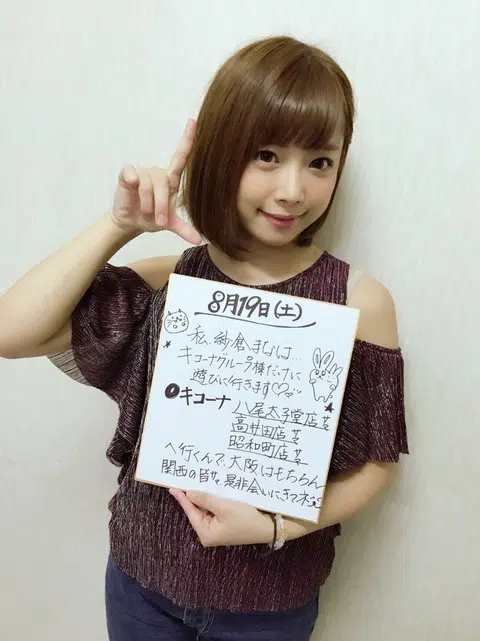 8月19日(土)
私、紗倉まなは…
キコーナグループ様だけに
遊びに行きます♡♡…
キコーナ 八尾太子堂店
高井田店
昭和町店
へ行くんで、大阪はもちろん
関西の皆サマ、是非会いにきてネ